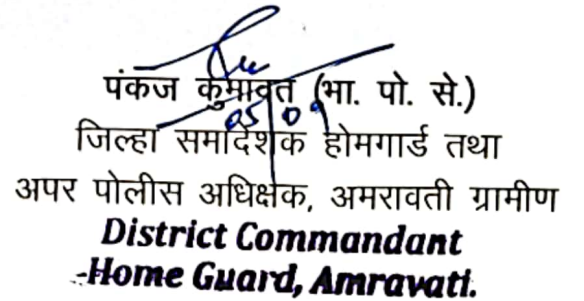 पंकज कुमावत (भा. पो. से.)
05/09
जिल्हा समादेशक होमगार्ड तथा
अपर पोलीस अधिक्षक, अमरावती ग्रामीण
District Commandant
Home Guard, Amravati.